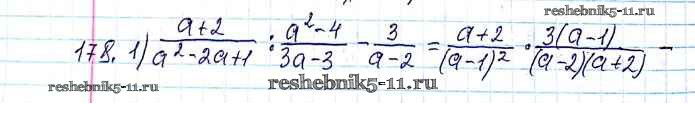 reshebnik5-11.ru
178. 1) \frac{a+2}{a^2-2a+1} : \frac{a^2-4}{3a-3} - \frac{3}{a-2} = \frac{a+2}{(a-1)^2} \cdot \frac{3(a-1)}{(a-2)(a+2)} -
reshebnik5-11.ru
reshebnik5-11.ru
reshebnik5-11.ru